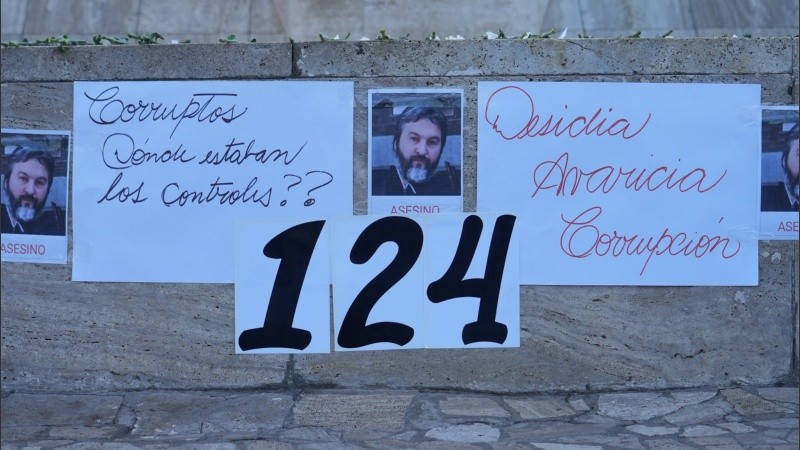 Corruptos
Dónde estaban
los controles??
ASESINO
ASESINO
Desidia
Avaricia
Corrupción
ASE
124